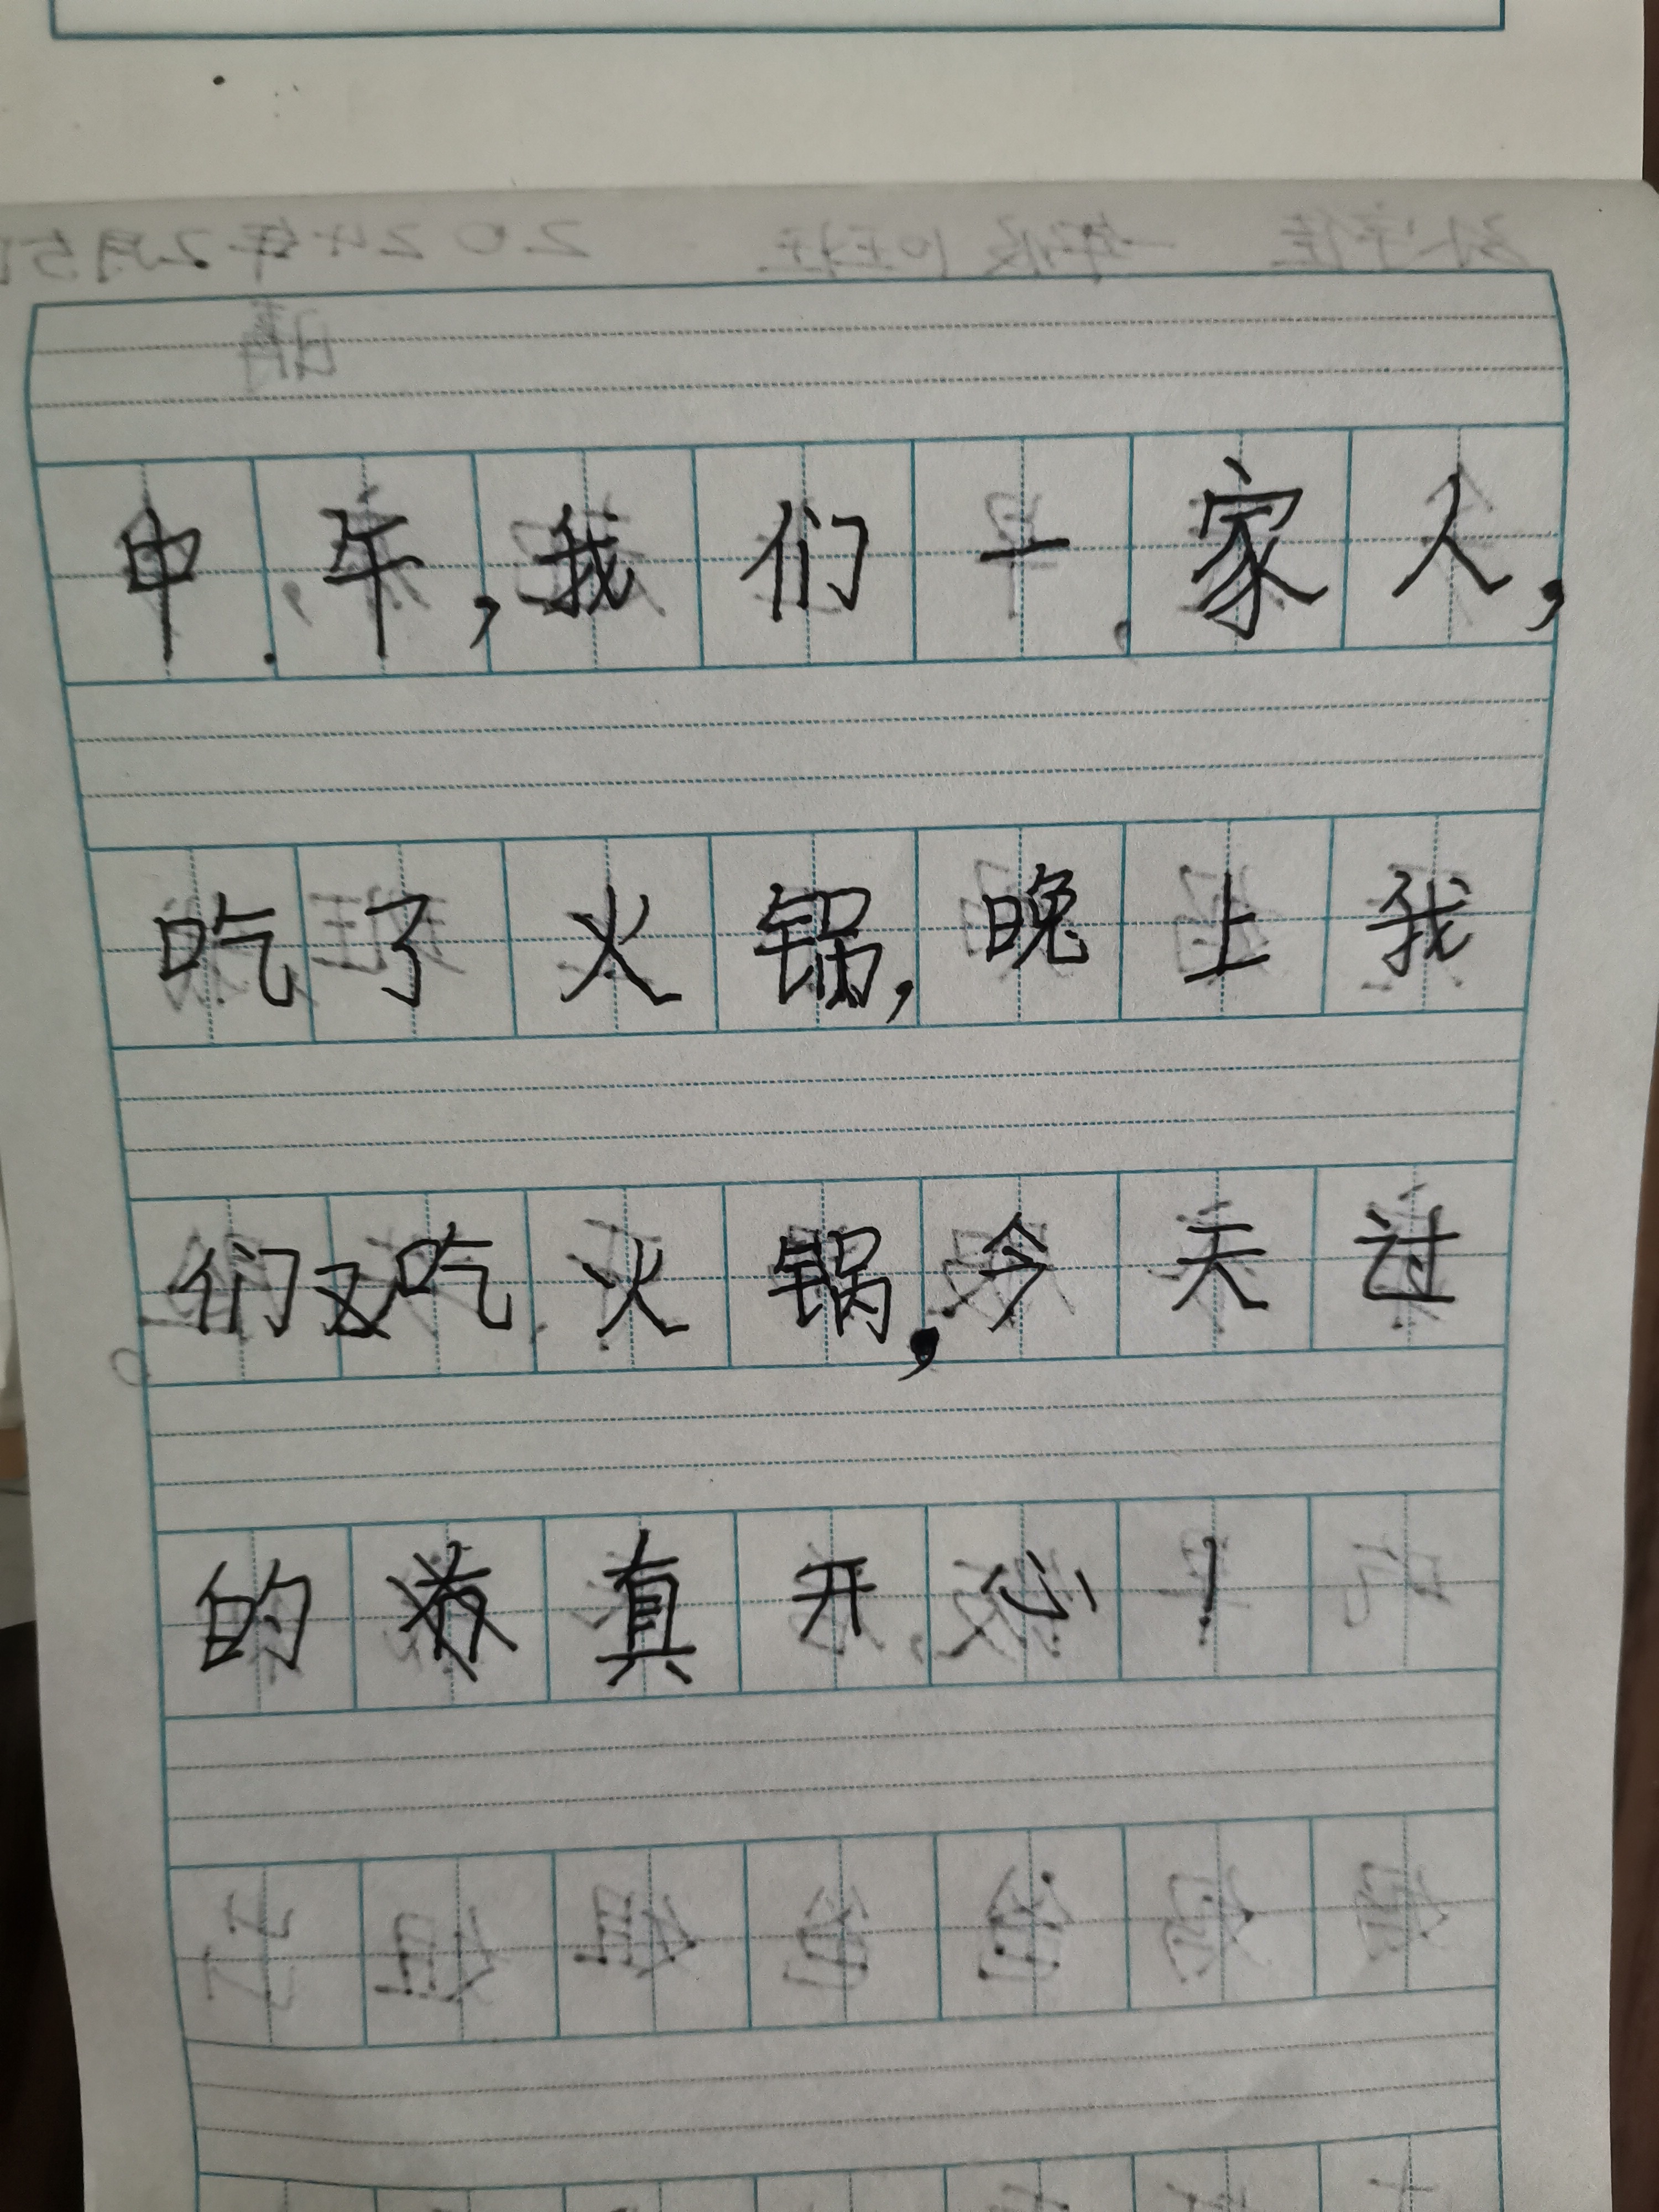 中午,我们一家人,
吃了火锅,晚上我
们又吃火锅,今天过
的真开心!